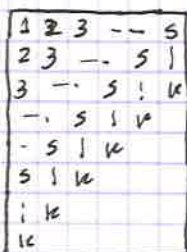 1 2 3 -- s
2 3 -. s |
3 -. s ¦ k
-. s | k
- s | k
s | k
¦ k
k